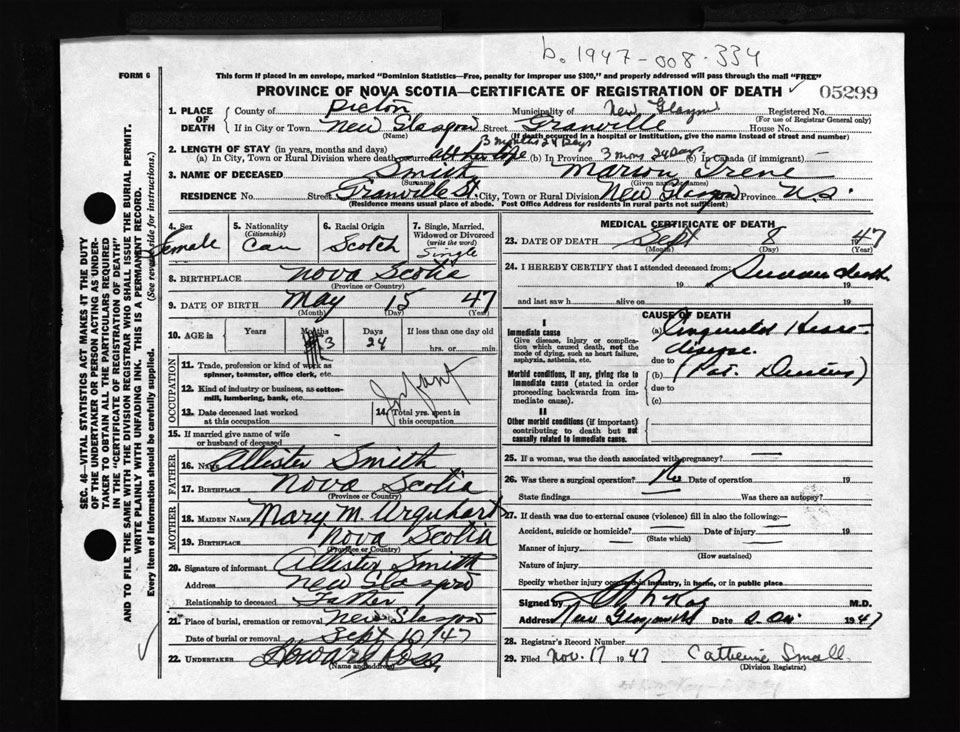 b. 1947-008-334
FORM 6
This form if placed in an envelope, marked "Dominion Statistics—Free, penalty for improper use $300," and properly addressed will pass through the mail "FREE"
PROVINCE OF NOVA SCOTIA—CERTIFICATE OF REGISTRATION OF DEATH ✓ 05299
1. PLACE OF DEATH
County of Pictou Municipality of New Glasgow Registered No.
(For use of Registrar General only)
If in City or Town New Glasgow Street Granville House No.
(Name) (If death occurred in a hospital or institution, give the name instead of street and number)
2. LENGTH OF STAY (in years, months and days) 3 months 24 Days
(a) In City, Town or Rural Division where death occurred all her life (b) In Province 3 mos 24 Days (c) In Canada (if immigrant) —
3. NAME OF DECEASED Smith Marion Irene
(Surname) (Given name or names)
RESIDENCE No. Street Granville St. City, Town or Rural Division New Glasgow Province N.S.
(Residence means usual place of abode. Post Office Address for residents in rural parts not sufficient)
4. Sex Female
5. Nationality (Citizenship) Can
6. Racial Origin Scotch
7. Single, Married, Widowed or Divorced (write the word) Single
8. BIRTHPLACE Nova Scotia
(Province or Country)
9. DATE OF BIRTH May 15 47
(Month) (Day) (Year)
10. AGE in Years Months 3 Days 24 If less than one day old
hrs. or min.
OCCUPATION
11. Trade, profession or kind of work as spinner, teamster, office clerk, etc.
Infant
12. Kind of industry or business, as cotton-mill, lumbering, bank, etc.
13. Date deceased last worked at this occupation
14. Total yrs. spent in this occupation
15. If married give name of wife or husband of deceased -
FATHER
16. Name Allister Smith
17. Birthplace Nova Scotia
(Province or Country)
MOTHER
18. MAIDEN NAME Mary M. Urquhart
19. BIRTHPLACE Nova Scotia
(Province or Country)
20. Signature of informant Allister Smith
Address New Glasgow
Relationship to deceased Father
21. Place of burial, cremation or removal New Glasgow
Date of burial or removal Sept 10, 47
22. UNDERTAKER Howard Ross
(Name and address)
MEDICAL CERTIFICATE OF DEATH
23. DATE OF DEATH Sept 8 1947
(Month) (Day) (Year)
24. I HEREBY CERTIFY that I attended deceased from: Sudden death
19 to 19
and last saw h alive on 19
CAUSE OF DEATH
I
Immediate cause
Give disease, injury or complication which caused death, not the mode of dying, such as heart failure, asphyxia, asthenia, etc.
(a) Congenital Heart
disease.
due to
Morbid conditions, if any, giving rise to immediate cause (stated in order proceeding backwards from immediate cause)
(b) (Pat. Ductus)
due to
(c)
II
Other morbid conditions (if important) contributing to death but not causally related to immediate cause.
25. If a woman, was the death associated with pregnancy? —
26. Was there a surgical operation? No Date of operation 19
State findings Was there an autopsy?
27. If death was due to external causes (violence) fill in also the following:—
Accident, suicide or homicide? — Date of injury — 19
(State which)
Manner of injury
(How sustained)
Nature of injury
Specify whether injury occurred in industry, in home, or in public place
Signed by M.D.
Address New Glasgow Date 1947
28. Registrar's Record Number
29. Filed Nov. 17 1947 Catherine Small.
(Division Registrar)
SEC. 46—VITAL STATISTICS ACT MAKES IT THE DUTY OF THE UNDERTAKER OR PERSON ACTING AS UNDERTAKER TO OBTAIN ALL THE PARTICULARS REQUIRED IN THE "CERTIFICATE OF REGISTRATION OF DEATH" AND TO FILE THE SAME WITH THE DIVISION REGISTRAR WHO SHALL ISSUE THE BURIAL PERMIT.
WRITE PLAINLY WITH UNFADING INK. THIS IS A PERMANENT RECORD.
Every item of information should be carefully supplied. (See reverse side for instructions.)